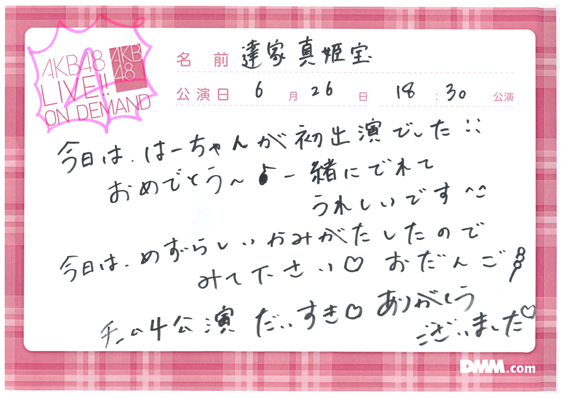 AKB48
LIVE!!
ON DEMAND
AKB
48
名前 達家真姫宝
公演日 6月26日 18:30 公演
今日は、はーちゃんが初出演でした!!
おめでとう〜♪一緒にでれて
うれしいです^^
今日は、めずらしいかみがたしたので
みて下さい♡ おだんご
チーム4公演 だいすき♡ ありがとう
ございました♡
DMM.com